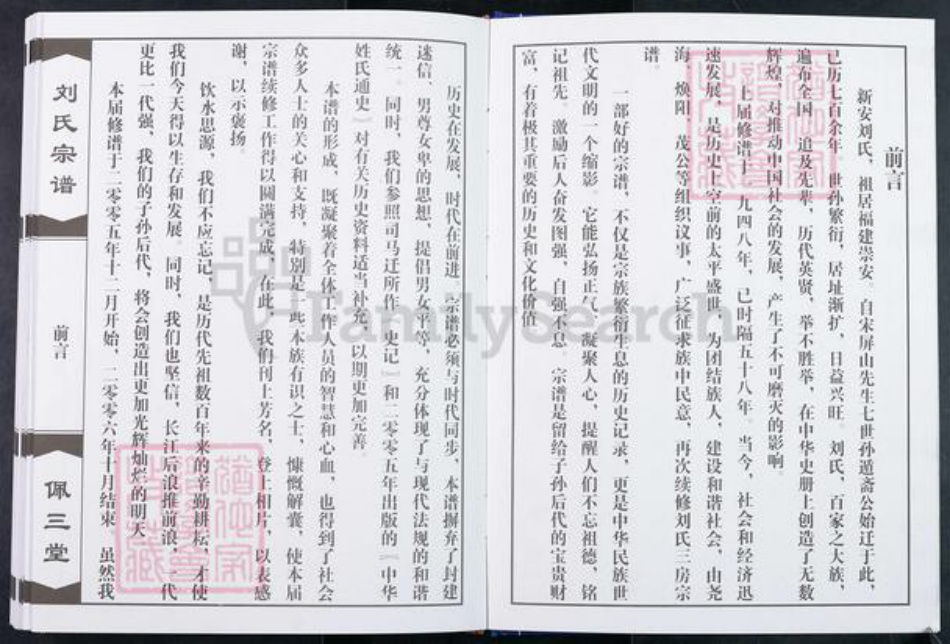 前言
新安刘氏，祖居福建崇安。自宋屏山先生七世孙遁斋公始迁于此，
已历七百余年。世孙繁衍，居址渐扩，日益兴旺。刘氏，百家之大族，
遍布全国。追及先辈，历代英贤，举不胜举，在中华史册上创造了无数
辉煌，对推动中国社会的发展，产生了不可磨灭的影响。
上届修谱于一九四八年，已时隔五十八年。当今，社会和经济迅
速发展，是历史上空前的太平盛世。为团结族人，建设和谐社会，由尧
海、焕阳、茂公等组织议事，广泛征求族中民意，再次续修刘氏三房宗
谱。
一部好的宗谱，不仅是宗族繁衍生息的历史记录，更是中华民族世
代文明的一个缩影。它能弘扬正气，凝聚人心，提醒人们不忘祖德，铭
记祖先。激励后人奋发图强，自强不息。宗谱是留给子孙后代的宝贵财
富，有着极其重要的历史和文化价值。
历史在发展，时代在前进。宗谱必须与时代同步，本谱摒弃了封建
迷信、男尊女卑的思想，提倡男女平等，充分体现了与现代法规的和谐
统一。同时，我们参照司马迁所作《史记》和二零零五年出版的《中华
姓氏通史》对有关历史资料适当补充，以期更加完善。
本谱的形成，既凝聚着全体工作人员的智慧和心血，也得到了社会
众多人士的关心和支持，特别是一些本族有识之士，慷慨解囊，使本届
宗谱续修工作得以圆满完成，在此，我们刊上芳名，登上相片，以表感
谢，以示褒扬。
饮水思源，我们不应忘记，是历代先祖数百年来的辛勤耕耘，才使
我们今天得以生存和发展。同时，我们也坚信，长江后浪推前浪，一代
更比一代强，我们的子孙后代，将会创造出更加光辉灿烂的明天。
本届修谱于二零零五年十二月开始，二零零六年十月结束，虽然我
刘氏宗谱
前言
佩三堂
FamilySearch